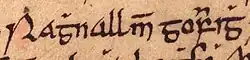 Ragnall m̅ gofraig